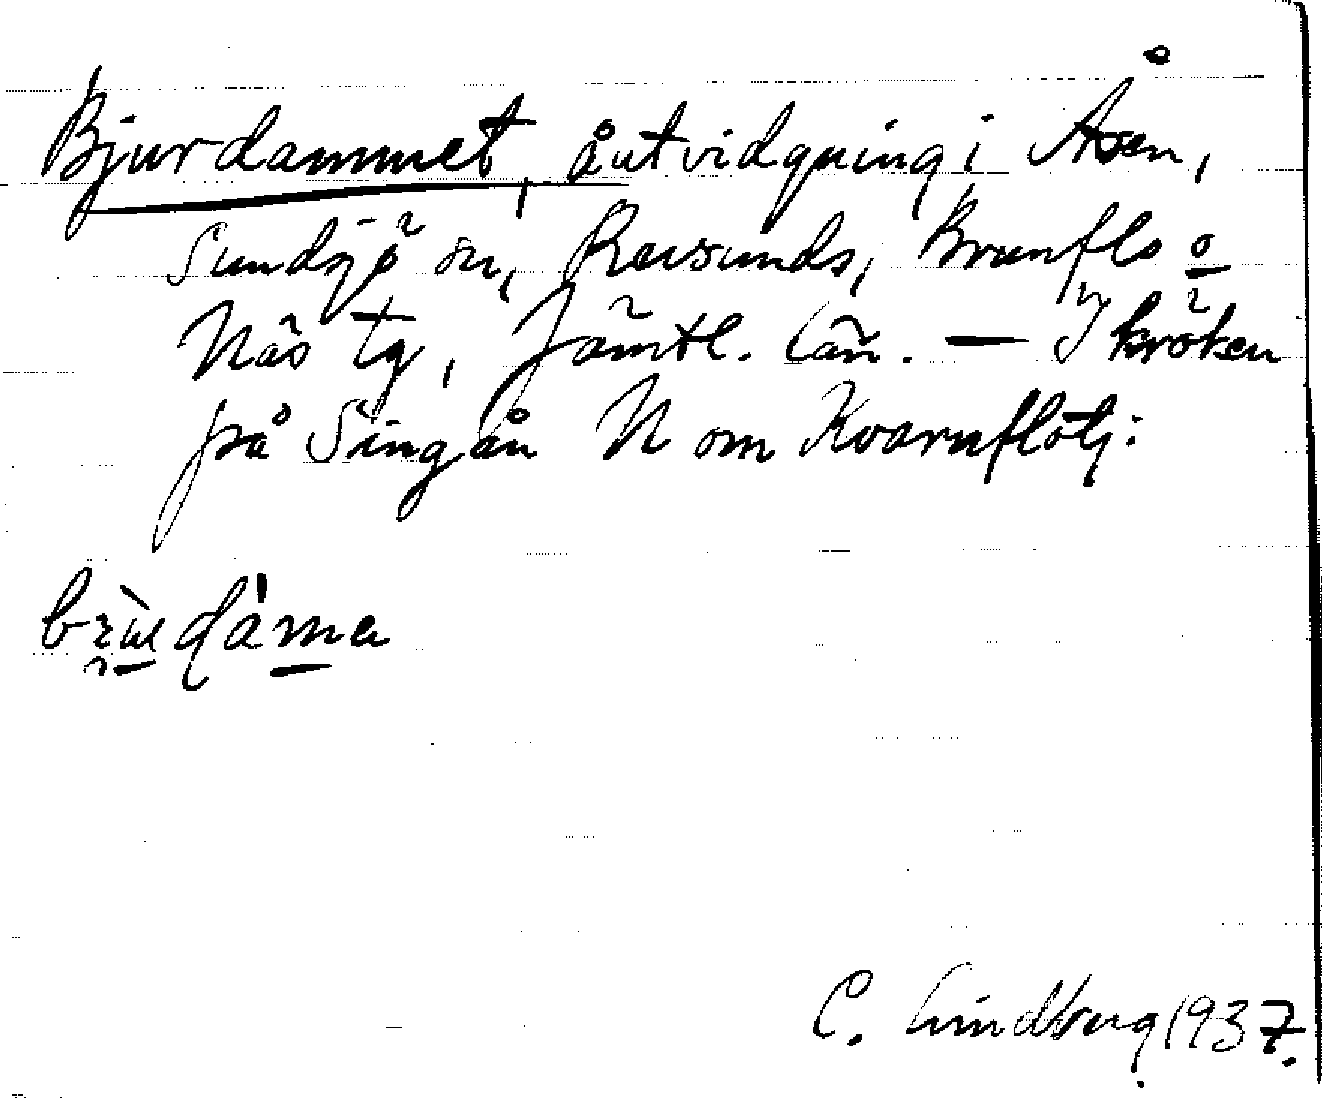 Bjurdammet, åutvidgning i Åsen,
Sundsjö sn, Revsunds, Brunflo o
Näs tg, Jämtl. län. — I kröken
på Singån N om Kvarnflötj:
C. Lindberg 1937.